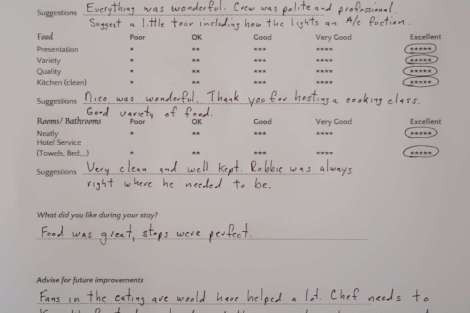 Suggestions Everything was wonderful. Crew was polite and professional.
Suggest a little tour including how the lights an A/c fuction.
Food Poor OK Good Very Good Excellent
Presentation * ** *** **** *****
Variety * ** *** **** *****
Quality * ** *** **** *****
Kitchen (clean) * ** *** **** *****
Suggestions Nico was wonderful. Thank you for hosting a cooking class.
Good variety of food.
Rooms/ Bathrooms Poor OK Good Very Good Excellent
Neatly * ** *** **** *****
Hotel Service
(Towels, Bed,...) * ** *** **** *****
Suggestions Very clean and well kept. Robbie was always
right where he needed to be.
What did you like during your stay?
Food was great, stops were perfect.
Advise for future improvements
Fans in the eating are would have helped a lot. Chef needs to